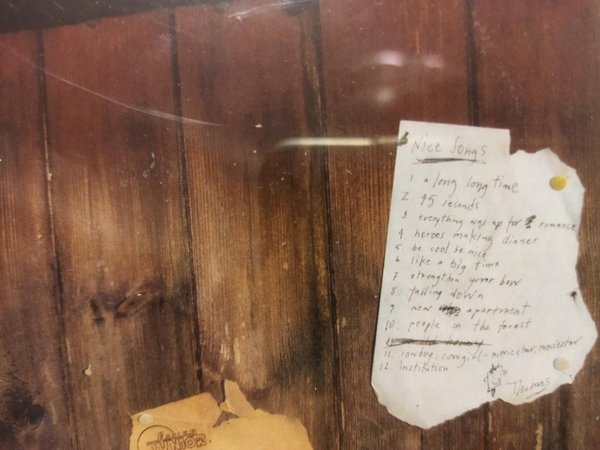 Nice Songs
1. a long long time
2. 45 seconds
3 everything was up for romance
4. heroes making dinner
5. be cool be nice
6. like a big time
7 strengthen your bow
8. falling down
9. new apartment
10. people in the forest
11. cowboy, cowgirl -
12. Institution
Thomas
JUNIOR